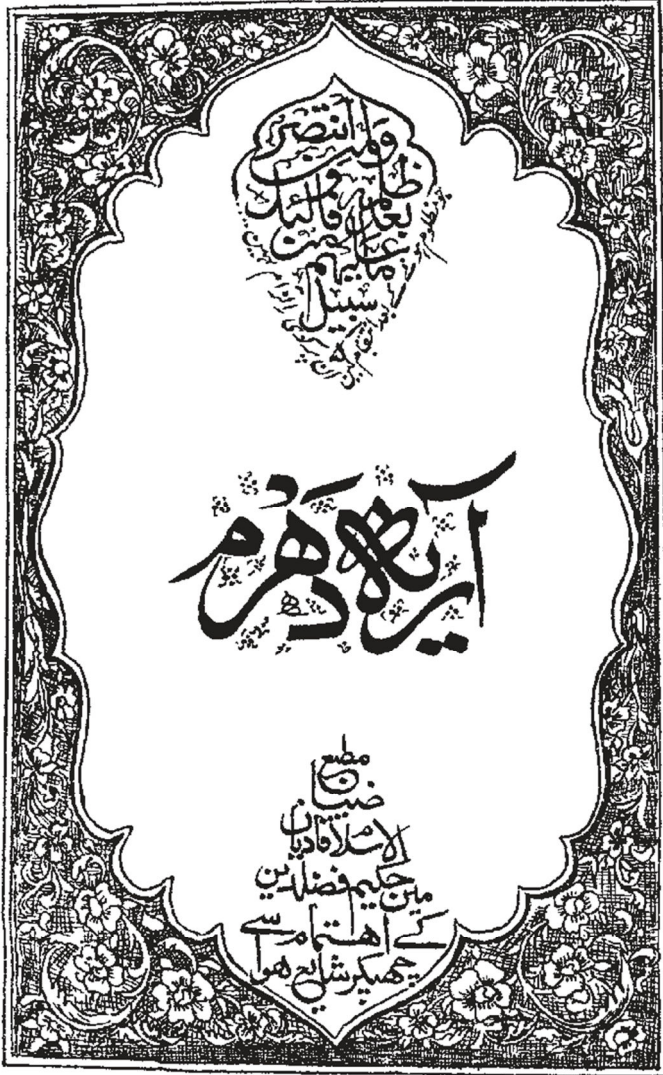 ولمن انتصر
بعد ظلمه فاولئك
ما عليهم من
سبيل
آریہ دھرم
مطبع
ضیاء
الاسلام قادیان
مین حکیم فضلدین
کے اہتمام سے
چھپکر شایع ہوا